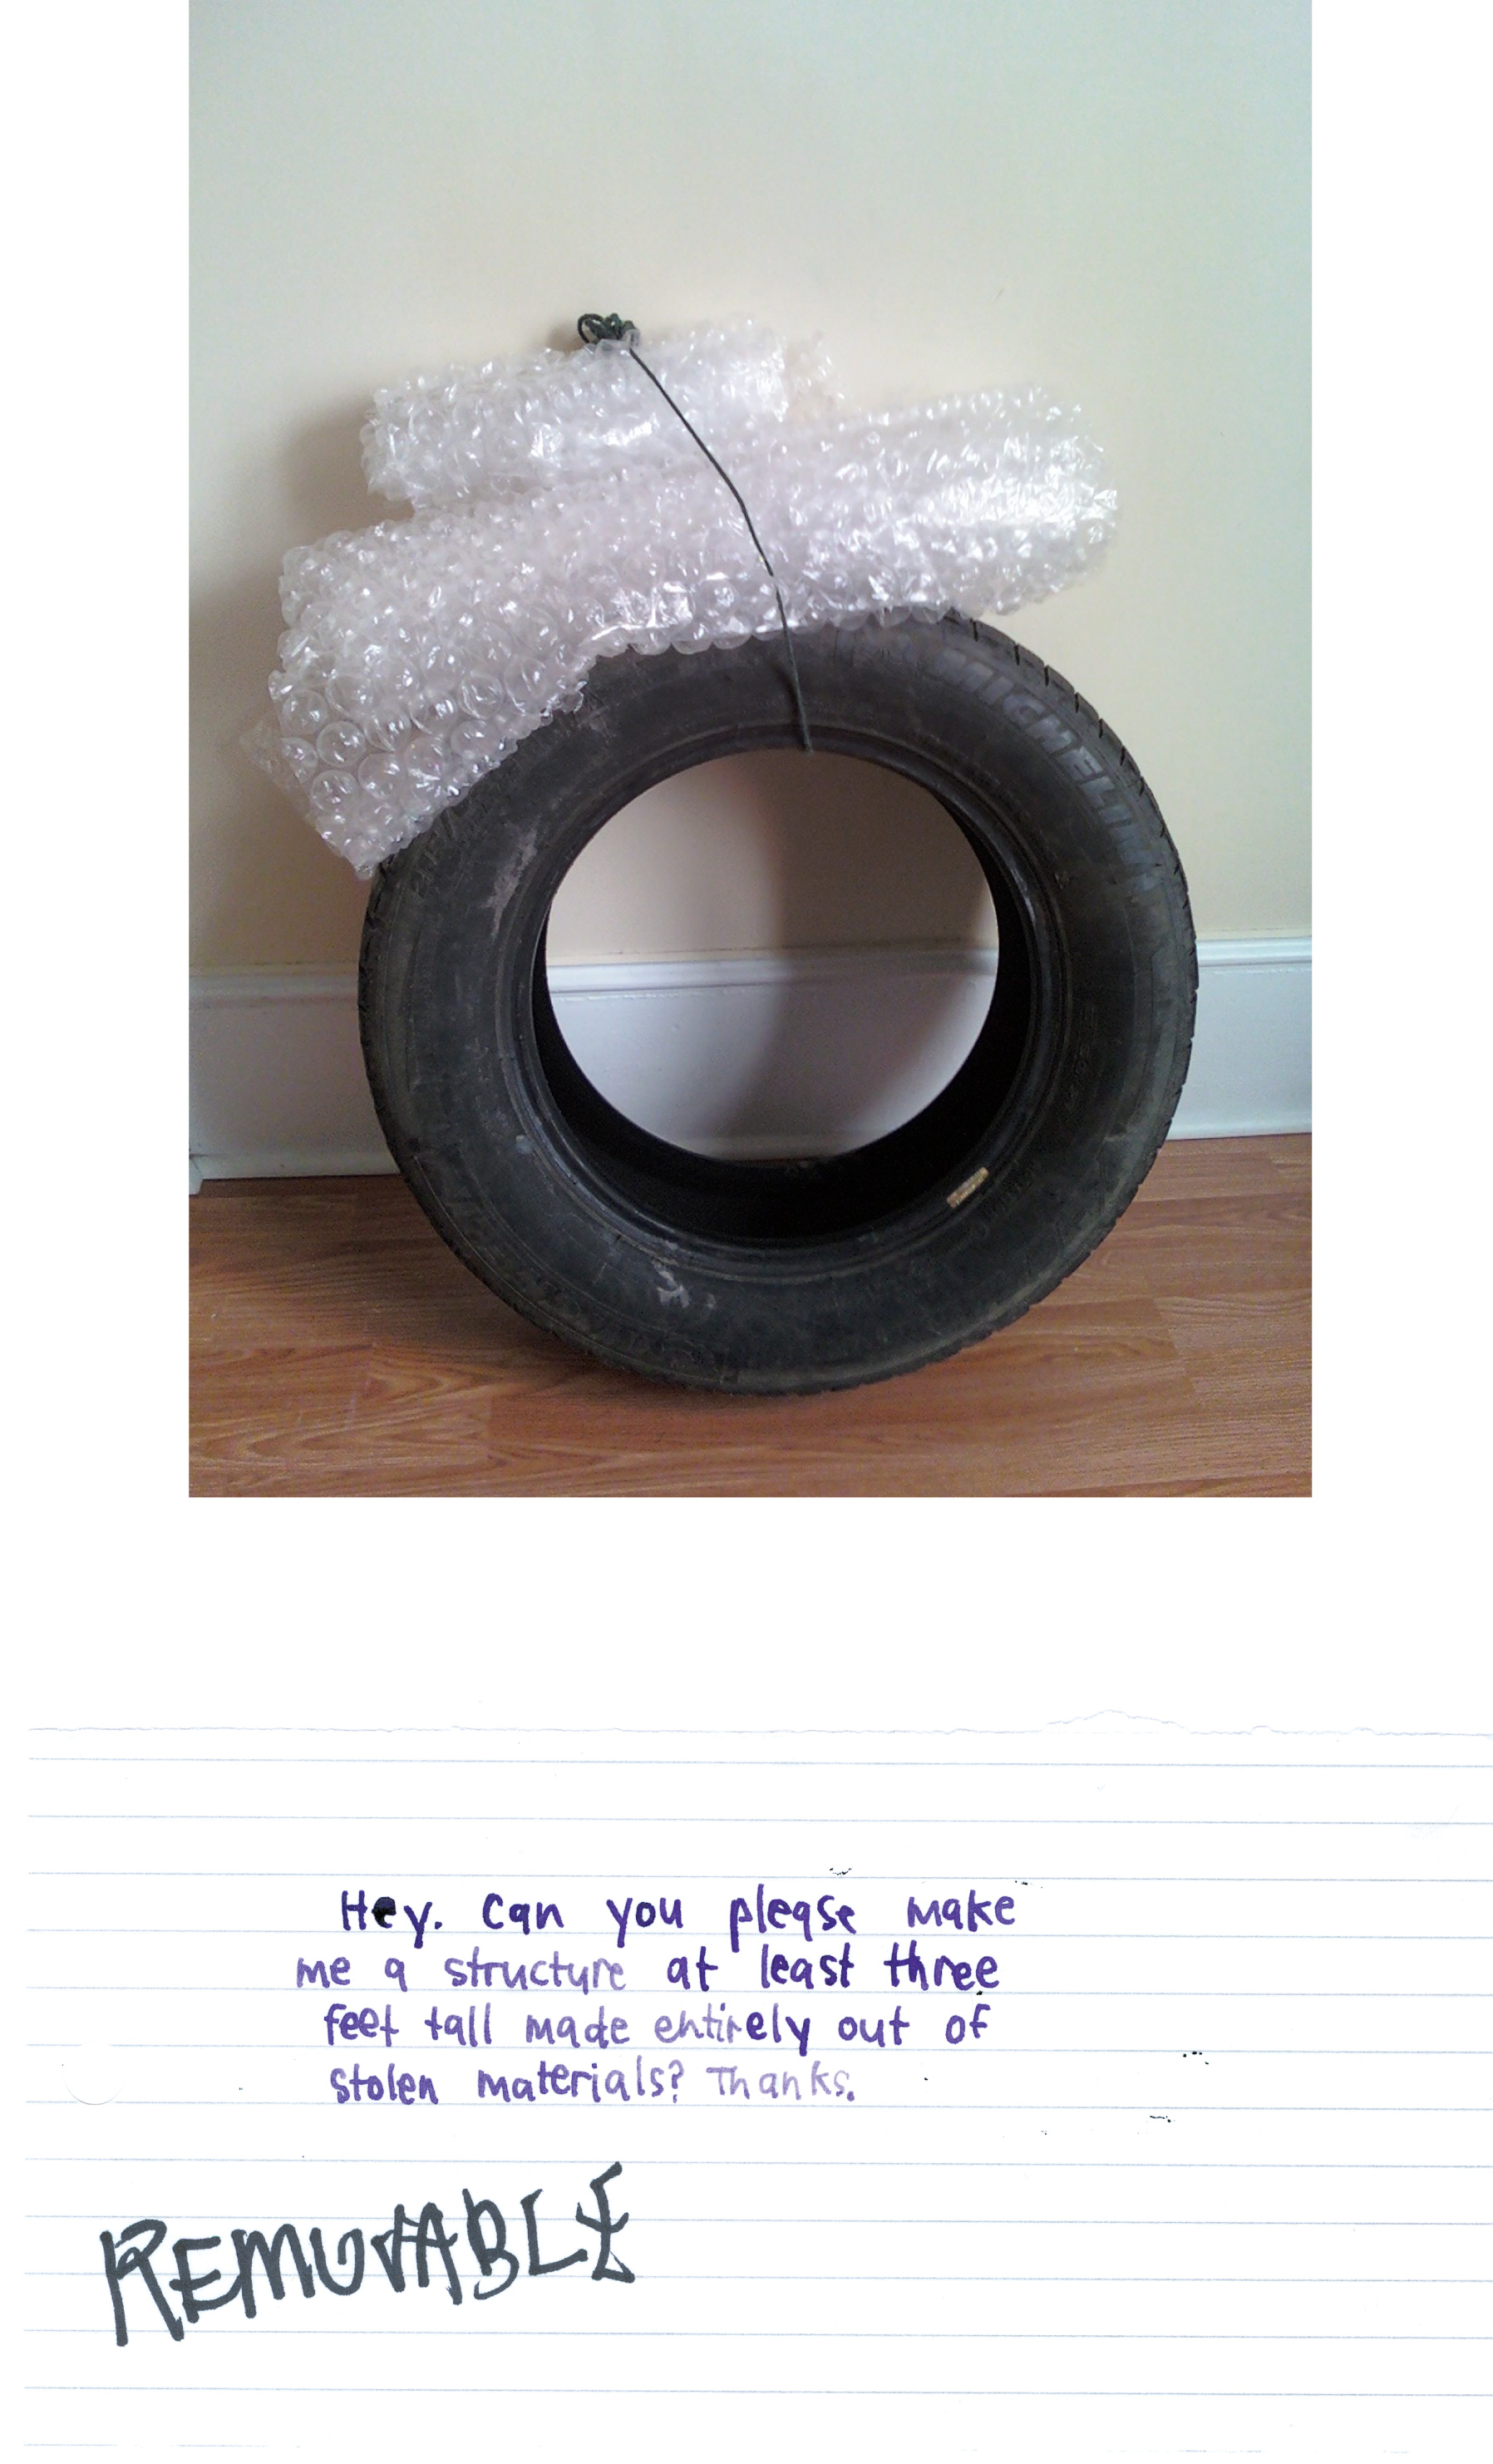 MICHELIN
Hey. Can you please make
me a structure at least three
feet tall made entirely out of
stolen materials? Thanks.
REMOVABLE